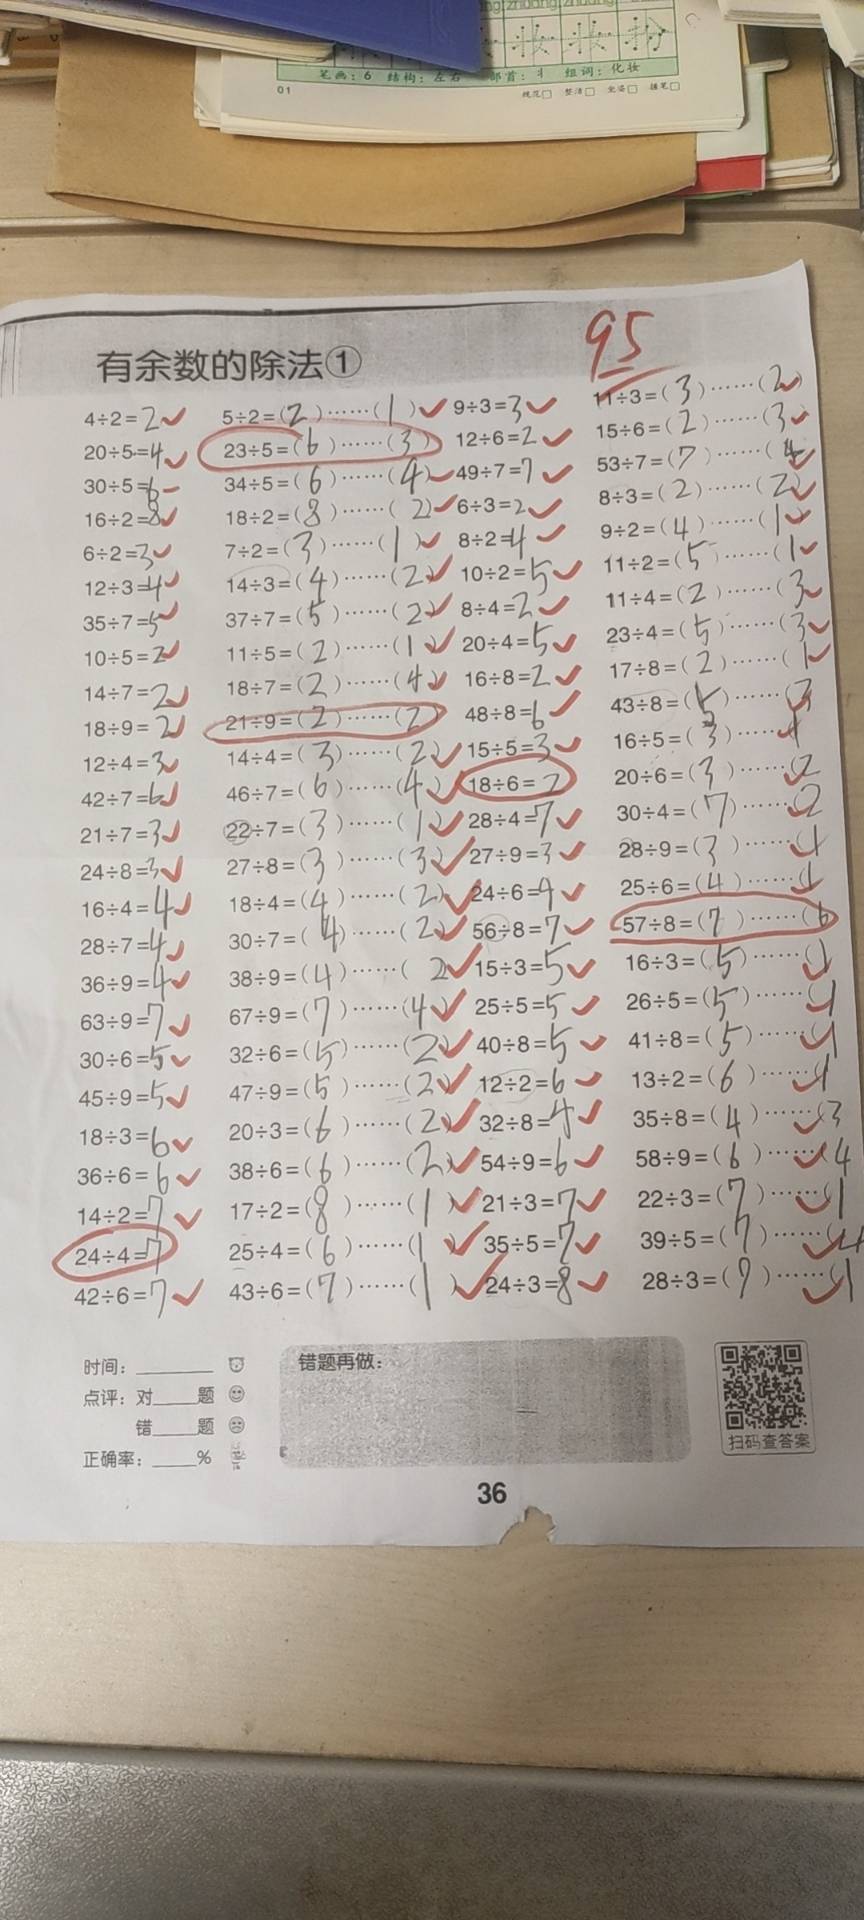 笔画：6 结构：左右 部首：丬 组词：化妆
01
规范□ 整洁□ 坐姿□ 握笔□
95
有余数的除法①
4÷2=2 5÷2=(2)……(1) 9÷3=3 11÷3=(3)……(2)
20÷5=4 23÷5=(6)……(3) 12÷6=2 15÷6=(2)……(3)
30÷5=6 34÷5=(6)……(4) 49÷7=7 53÷7=(7)……(4)
16÷2=8 18÷2=(8)……(2) 6÷3=2 8÷3=(2)……(2)
6÷2=3 7÷2=(3)……(1) 8÷2=4 9÷2=(4)……(1)
12÷3=4 14÷3=(4)……(2) 10÷2=5 11÷2=(5)……(1)
35÷7=5 37÷7=(5)……(2) 8÷4=2 11÷4=(2)……(3)
10÷5=2 11÷5=(2)……(1) 20÷4=5 23÷4=(5)……(3)
14÷7=2 18÷7=(2)……(4) 16÷8=2 17÷8=(2)……(1)
18÷9=2 21÷9=(2)……(2) 48÷8=6 43÷8=(5)……(3)
12÷4=3 14÷4=(3)……(2) 15÷5=3 16÷5=(3)……(1)
42÷7=6 46÷7=(6)……(4) 18÷6=2 20÷6=(3)……(2)
21÷7=3 22÷7=(3)……(1) 28÷4=7 30÷4=(7)……(2)
24÷8=3 27÷8=(3)……(3) 27÷9=3 28÷9=(3)……(1)
16÷4=4 18÷4=(4)……(2) 24÷6=4 25÷6=(4)……(1)
28÷7=4 30÷7=(4)……(2) 56÷8=7 57÷8=(7)……(6)
36÷9=4 38÷9=(4)……(2) 15÷3=5 16÷3=(5)……(1)
63÷9=7 67÷9=(7)……(4) 25÷5=5 26÷5=(5)……(1)
30÷6=5 32÷6=(5)……(2) 40÷8=5 41÷8=(5)……(1)
45÷9=5 47÷9=(5)……(2) 12÷2=6 13÷2=(6)……(1)
18÷3=6 20÷3=(6)……(2) 32÷8=4 35÷8=(4)……(3)
36÷6=6 38÷6=(6)……(2) 54÷9=6 58÷9=(6)……(4)
14÷2=7 17÷2=(8)……(1) 21÷3=7 22÷3=(7)……(1)
24÷4=7 25÷4=(6)……(1) 35÷5=7 39÷5=(7)……(4)
42÷6=7 43÷6=(7)……(1) 24÷3=8 28÷3=(9)……(1)
时间：________
点评：对____题
错____题
正确率：____%
错题再做：
扫码查答案
36